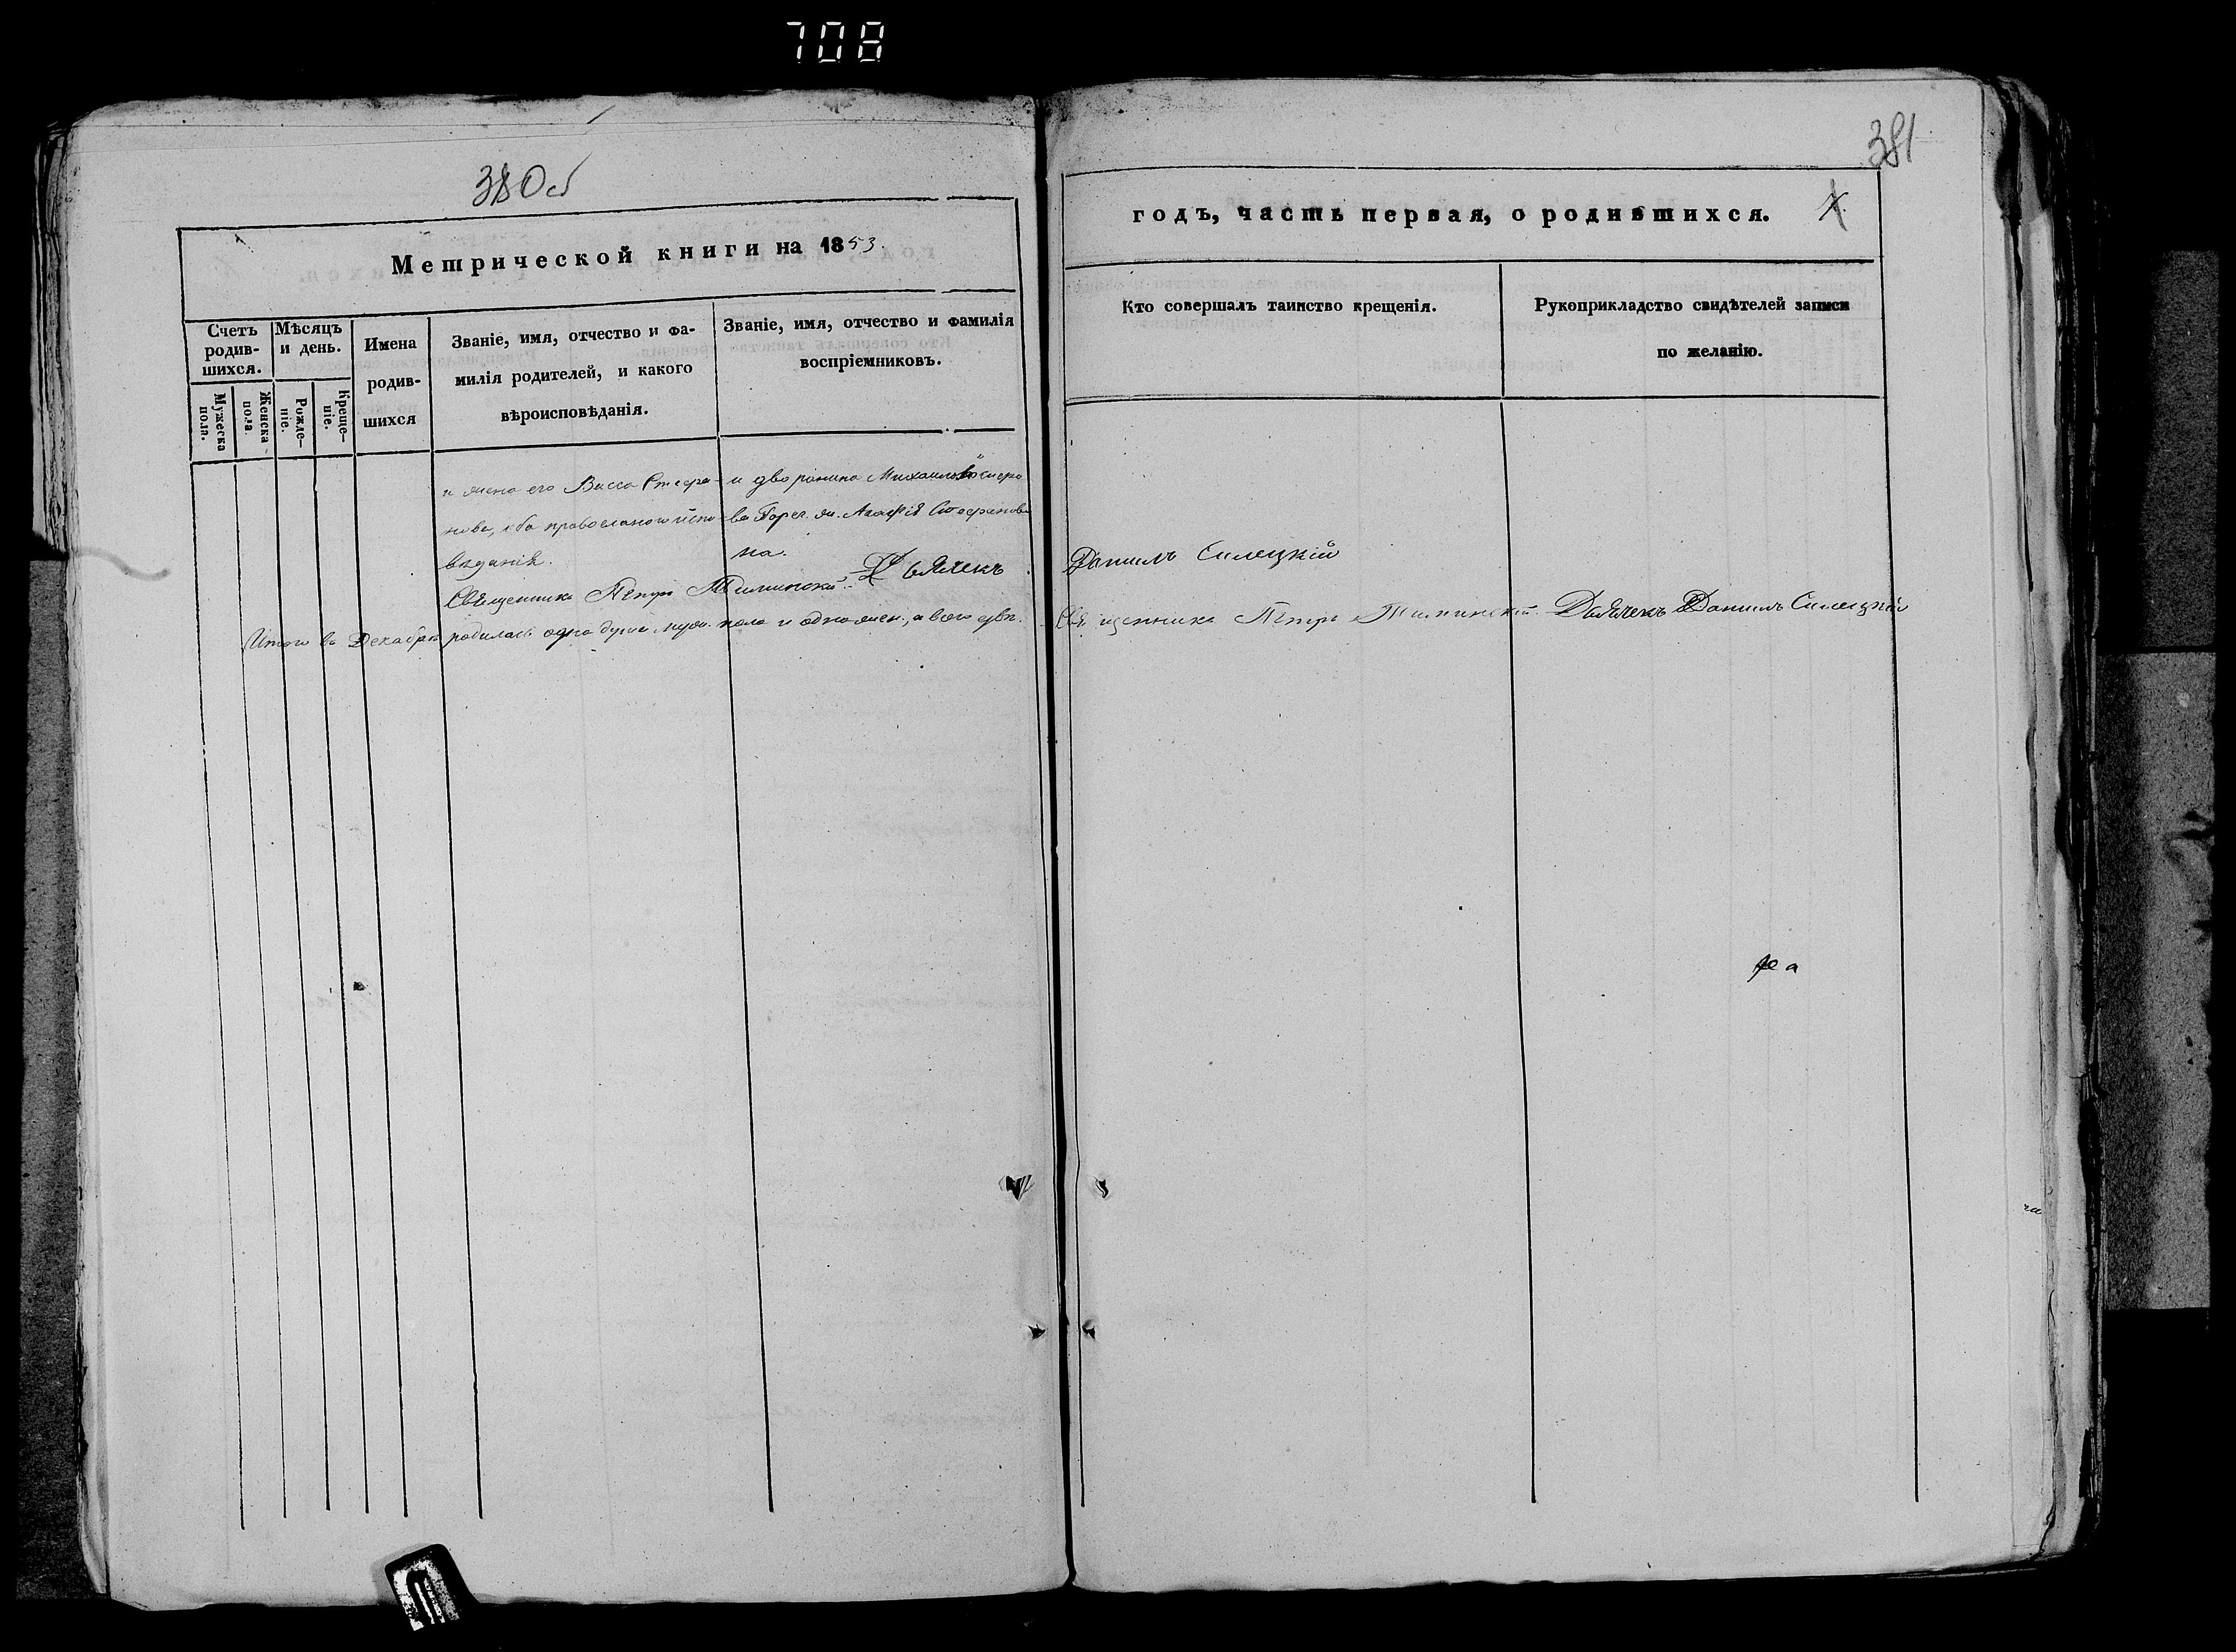 708
380 об
381
Метрической книги на 1853.
годъ, часть первая, о родившихся.
Счетъ родив-
шихся.
Мужеска
пола.
Женска
пола.
Мѣсяцъ
и день.
Рожде-
ніе.
Креще-
ніе.
Имена
родив-
шихся
Званіе, имя, отчество и фа-
милія родителей, и какого
вѣроисповѣданія.
Званіе, имя, отчество и фамилія
воспріемниковъ.
Кто совершалъ таинство крещенія.
Рукоприкладство свидѣтелей записи
по желанію.
и жена его Васса Стефа-
нова, оба православного испо-
вѣданія.
и дворянина Михаила
жи. Агафія Стефанов
на.
Священникъ Петръ
Дьячекъ
Данилъ Силецкій
Итого въ Декабрѣ родилась одна душа муж. пола и одна жен., а всего двѣ.
Священникъ Петръ
Дьячекъ Данилъ Силецкій